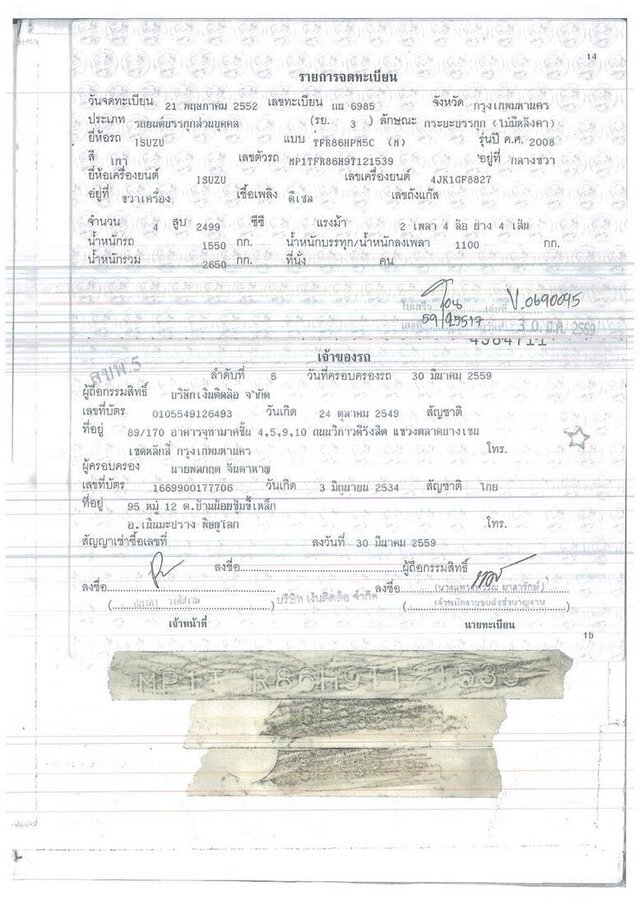 14
รายการจดทะเบียน
วันจดทะเบียน 21 พฤษภาคม 2552 เลขทะเบียน ถน 6985 จังหวัด กรุงเทพมหานคร
ประเภท รถยนต์บรรทุกส่วนบุคคล (รย. 3 ) ลักษณะ กระบะบรรทุก (ไม่มีหลังคา)
ยี่ห้อรถ ISUZU แบบ TFR86HPM5C (M) รุ่นปี ค.ศ. 2008
สี เทา เลขตัวรถ MP1TFR86H9T121539 อยู่ที่ กลางขวา
ยี่ห้อเครื่องยนต์ ISUZU เลขเครื่องยนต์ 4JK1GF8827
อยู่ที่ ขวาเครื่อง เชื้อเพลิง ดีเซล เลขถังแก๊ส
จำนวน 4 สูบ 2499 ซีซี แรงม้า 2 เพลา 4 ล้อ ยาง 4 เส้น
น้ำหนักรถ 1550 กก. น้ำหนักบรรทุก/น้ำหนักลงเพลา 1100 กก.
น้ำหนักรวม 2650 กก. ที่นั่ง คน
V.0690095
59/25517 30 มี.ค. 2559
4384711
สขพ.5
เจ้าของรถ
ลำดับที่ 6 วันที่ครอบครองรถ 30 มีนาคม 2559
ผู้ถือกรรมสิทธิ์ บริษัทเงินติดล้อ จำกัด
เลขที่บัตร 0105549126493 วันเกิด 24 ตุลาคม 2549 สัญชาติ
ที่อยู่ 89/170 อาคารจุฑามาศชั้น 4,5,9,10 ถนนวิภาวดีรังสิต แขวงตลาดบางเขน
เขตหลักสี่ กรุงเทพมหานคร โทร.
ผู้ครอบครอง นายพลกฤต จินดาหาญ
เลขที่บัตร 1669900177706 วันเกิด 3 มิถุนายน 2534 สัญชาติ ไทย
ที่อยู่ 95 หมู่ 12 ต.บ้านน้อยซุ้มขี้เหล็ก
อ.เนินมะปราง พิษณุโลก โทร.
สัญญาเช่าซื้อเลขที่ ลงวันที่ 30 มีนาคม 2559
ลงชื่อ ผู้ถือกรรมสิทธิ์
ลงชื่อ ลงชื่อ
บริษัท เงินติดล้อ จำกัด
เจ้าพนักงานขนส่งชำนาญงาน
เจ้าหน้าที่ นายทะเบียน
15